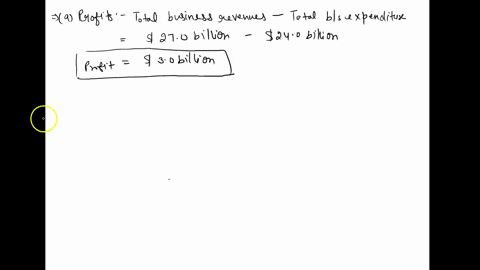 ⇒(a) Profit :- Total business revenues - Total b/s expenditure
= $ 27.0 billion - $24.0 billion
Profit = $ 3.0 billion